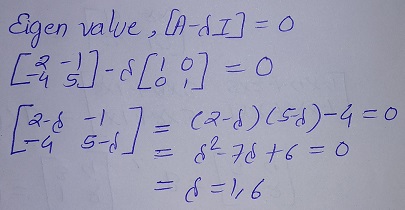 Eigen value, [A-λI] = 0
[2 -1
-4 5] - λ [1 0
0 1] = 0
[2-λ -1
-4 5-λ] = (2-λ)(5-λ)-4 = 0
= λ²-7λ+6 = 0
= λ = 1, 6